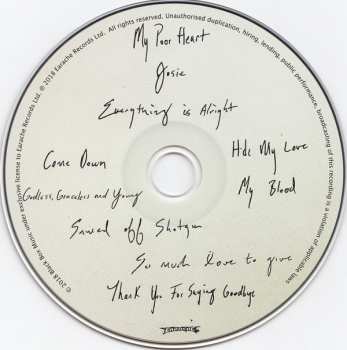 My Poor Heart
Josie
Everything is Alright
Come Down
Hide My Love
Godless, Graceless and Young
My Blood
Sawed off Shotgun
So much love to give
Thank You For Saying Goodbye
© 2018 Black Box Music under exclusive license to Earache Records Ltd. ℗ 2018 Earache Records Ltd. All rights reserved. Unauthorised duplication, hiring, lending, public performance, broadcasting of this recording is a violation of applicable laws